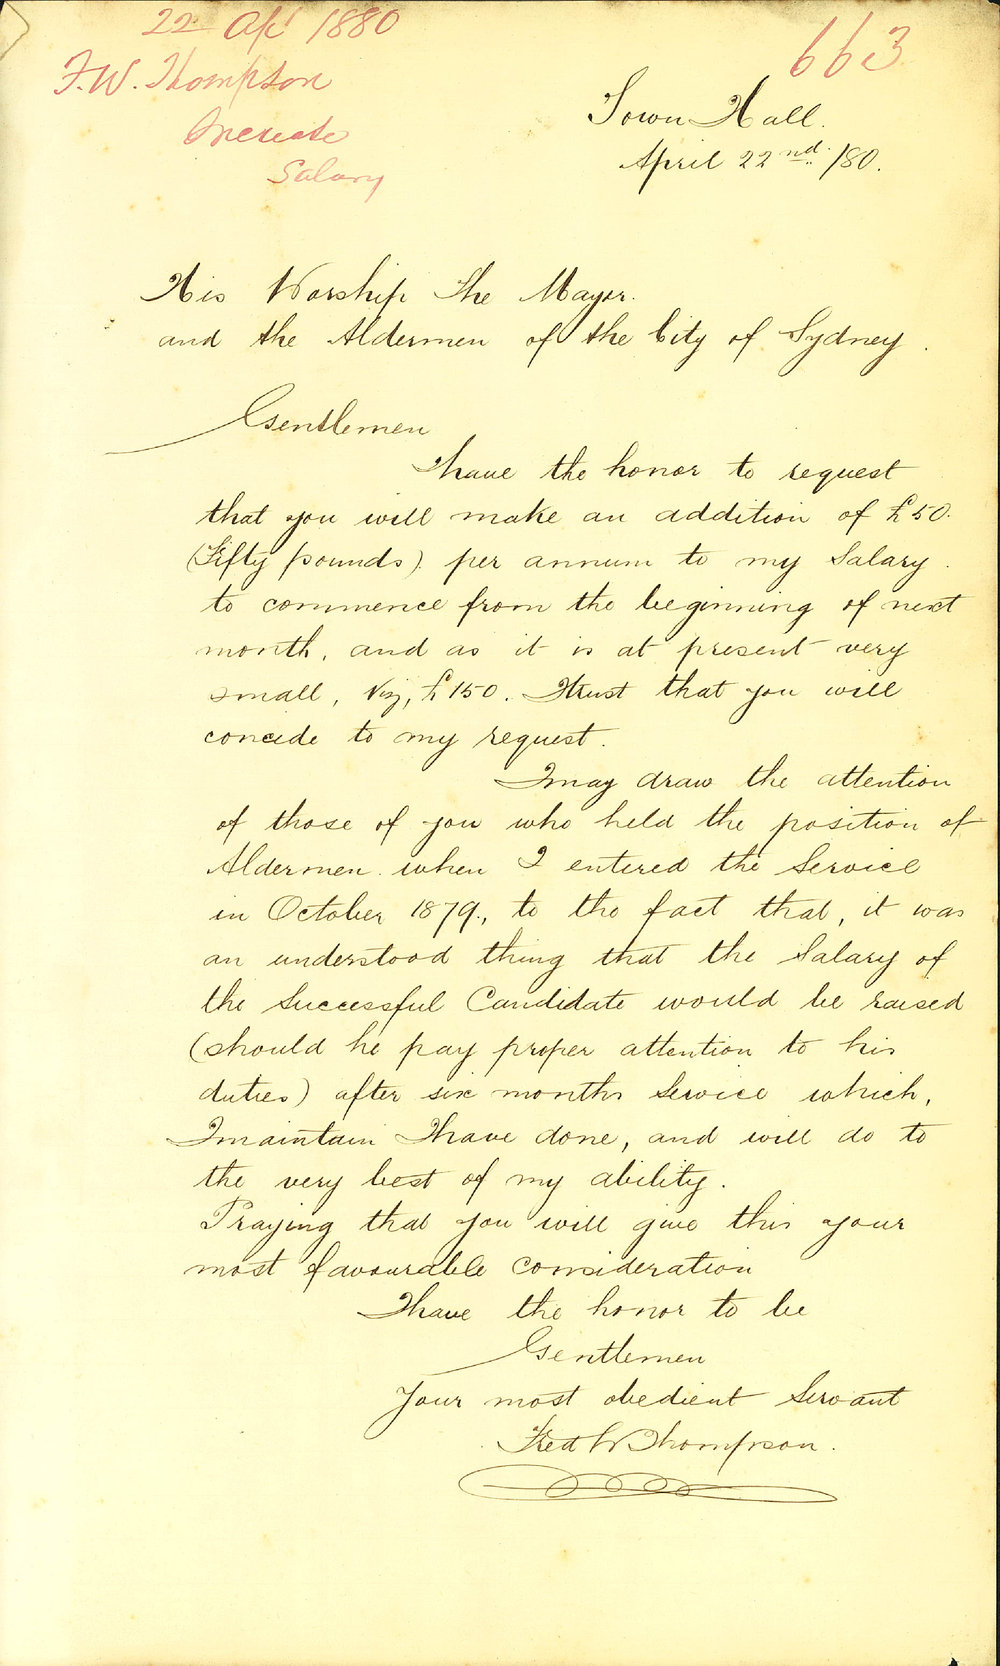 22 Apl 1880
663
F.W. Thompson
Increase
Salary
Town Hall.
April 22nd. /80.
His Worship The Mayor.
and the Aldermen of the City of Sydney.
Gentlemen
I have the honor to request
that you will make an addition of £50.
(Fifty pounds) per annum to my Salary.
to commence from the beginning of next
month, and as it is at present very
small, Viz, £150. I trust that you will
concide to my request.
I may draw the attention
of those of you who held the position of
Aldermen. when I entered the Service
in October 1879., to the fact that, it was
an understood thing that the Salary of
the Successful Candidate would be raised
(should he pay proper attention to his
duties) after six months Service which,
I maintain I have done, and will do to
the very best of my ability.
Praying that you will give this your
most favourable consideration
I have the honor to be
Gentlemen
Your most obedient Servant
Fred W Thompson.